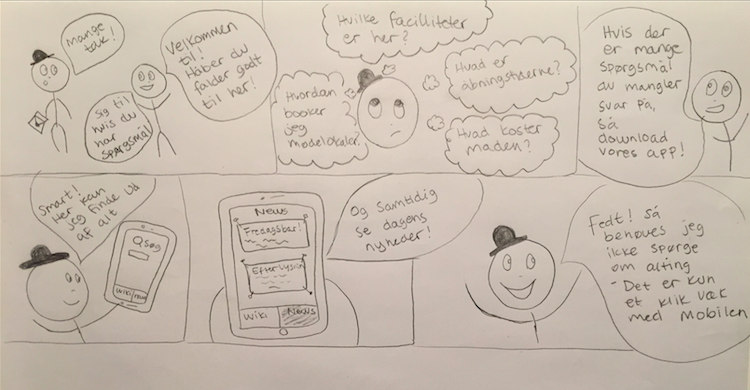 Mange
tak!
Velkommen
til!
Håber du
falder godt
til her!
Sig til
hvis du
har
spørgsmål
Hvilke faciliteter
er her?
Hvordan
booker
jeg
mødelokaler?
Hvad er
åbningstiderne?
Hvad koster
maden?
Hvis der
er mange
spørgsmål
du mangler
svar på,
så
download
vores app!
Smart!
Her kan
jeg finde ud
af alt
Søg
Wiki
News
Fredagsbar!
Efterlysning
Wiki
News
Og samtidig
se dagens
nyheder!
Fedt! Så
behøves jeg
ikke spørge
om alting
- Det er kun
et klik væk
med mobilen